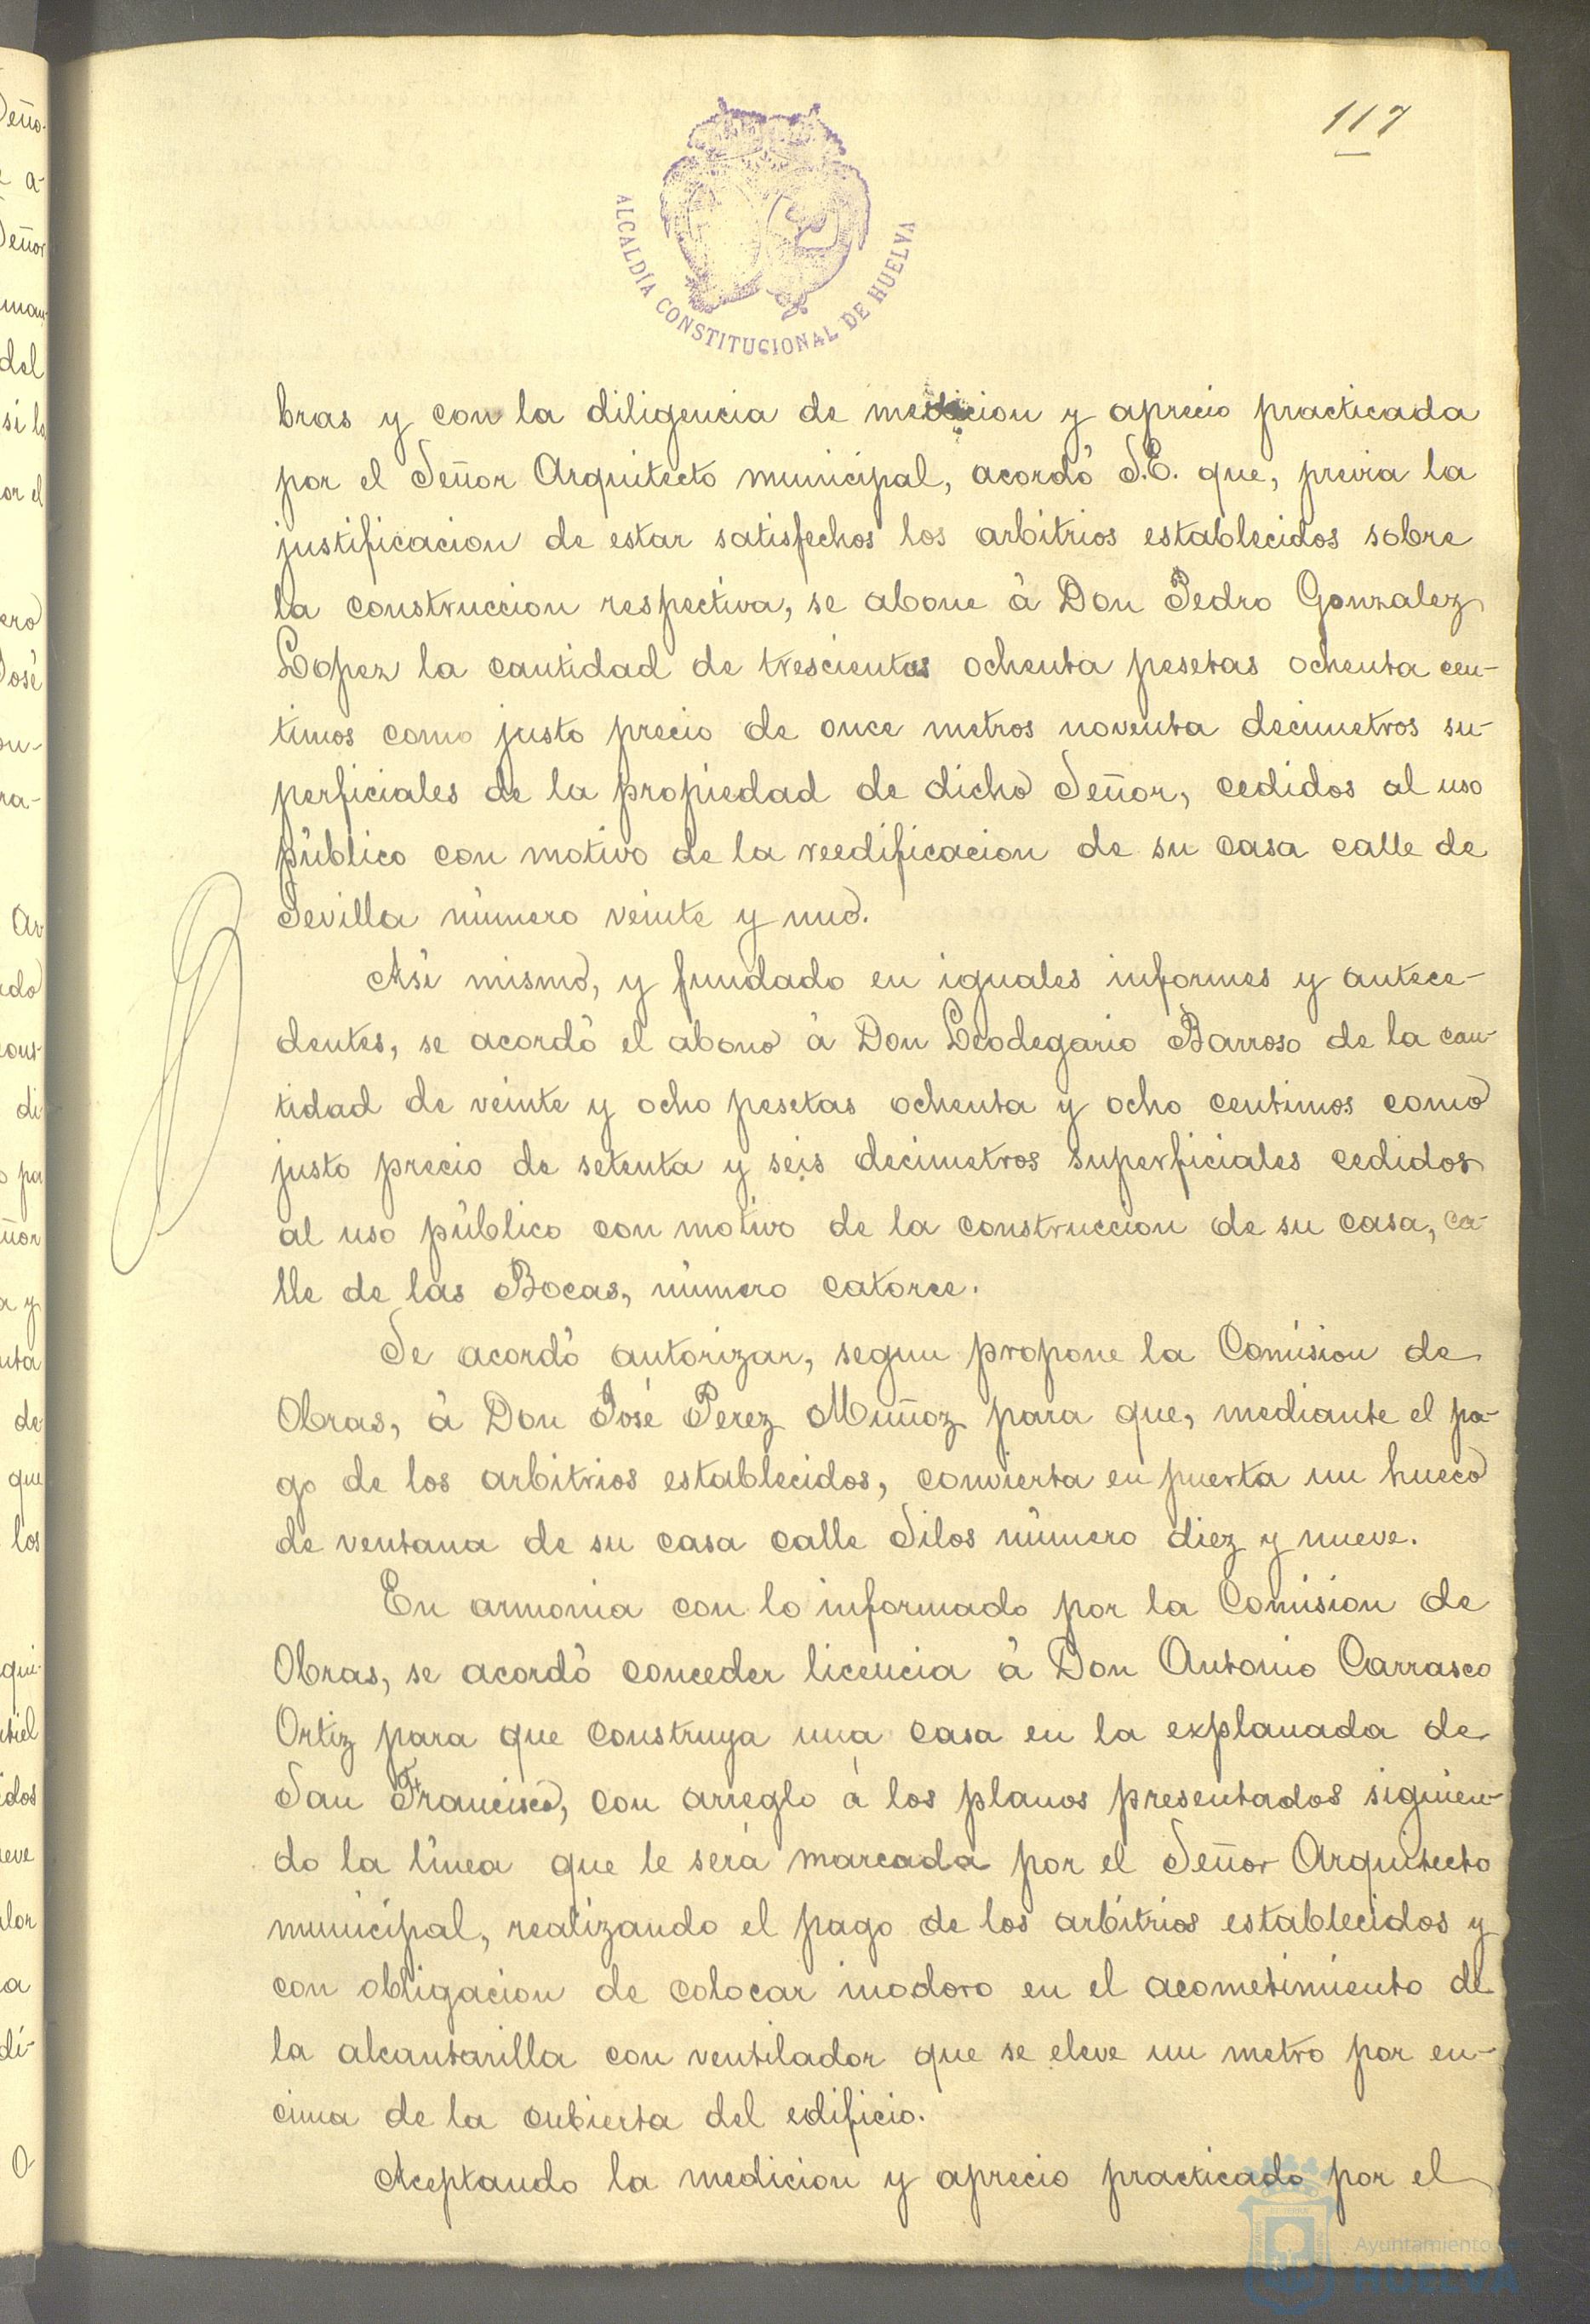 117
ALCALDÍA CONSTITUCIONAL DE HUELVA
bras y con la diligencia de medicion y aprecio practicada
por el Señor Arquitecto municipal, acordó S.E. que, previa la
justificacion de estar satisfechos los arbitrios establecidos sobre
la construccion respectiva, se abone á Don Pedro Gonzalez
Lopez la cantidad de trescientas ochenta pesetas ochenta cen-
timos como justo precio de once metros noventa decimetros su-
perficiales de la propiedad de dicho Señor, cedidos al uso
público con motivo de la reedificacion de su casa calle de
Sevilla número veinte y uno.
Así mismo, y fundado en iguales informes y antece-
dentes, se acordó el abono á Don Leodegario Barroso de la can-
tidad de veinte y ocho pesetas ochenta y ocho centimos como
justo precio de setenta y seis decimetros superficiales cedidos
al uso público con motivo de la construccion de su casa, ca-
lle de las Bocas, número catorce.
Se acordó autorizar, segun propone la Comision de
Obras, á Don José Perez Muñoz para que, mediante el pa-
go de los arbitrios establecidos, convierta en puerta un hueco
de ventana de su casa calle Silos número diez y nueve.
En armonia con lo informado por la Comision de
Obras, se acordó conceder licencia á Don Antonio Carrasco
Ortiz para que construya una casa en la explanada de
San Francisco, con arreglo á los planos presentados siguien-
do la línea que le será marcada por el Señor Arquitecto
municipal, realizando el pago de los arbitrios establecidos y
con obligacion de colocar inodoro en el acometimiento de
la alcantarilla con ventilador que se eleve un metro por en-
cima de la cubierta del edificio.
Aceptando la medicion y aprecio practicado por el
Ayuntamiento de
HUELVA